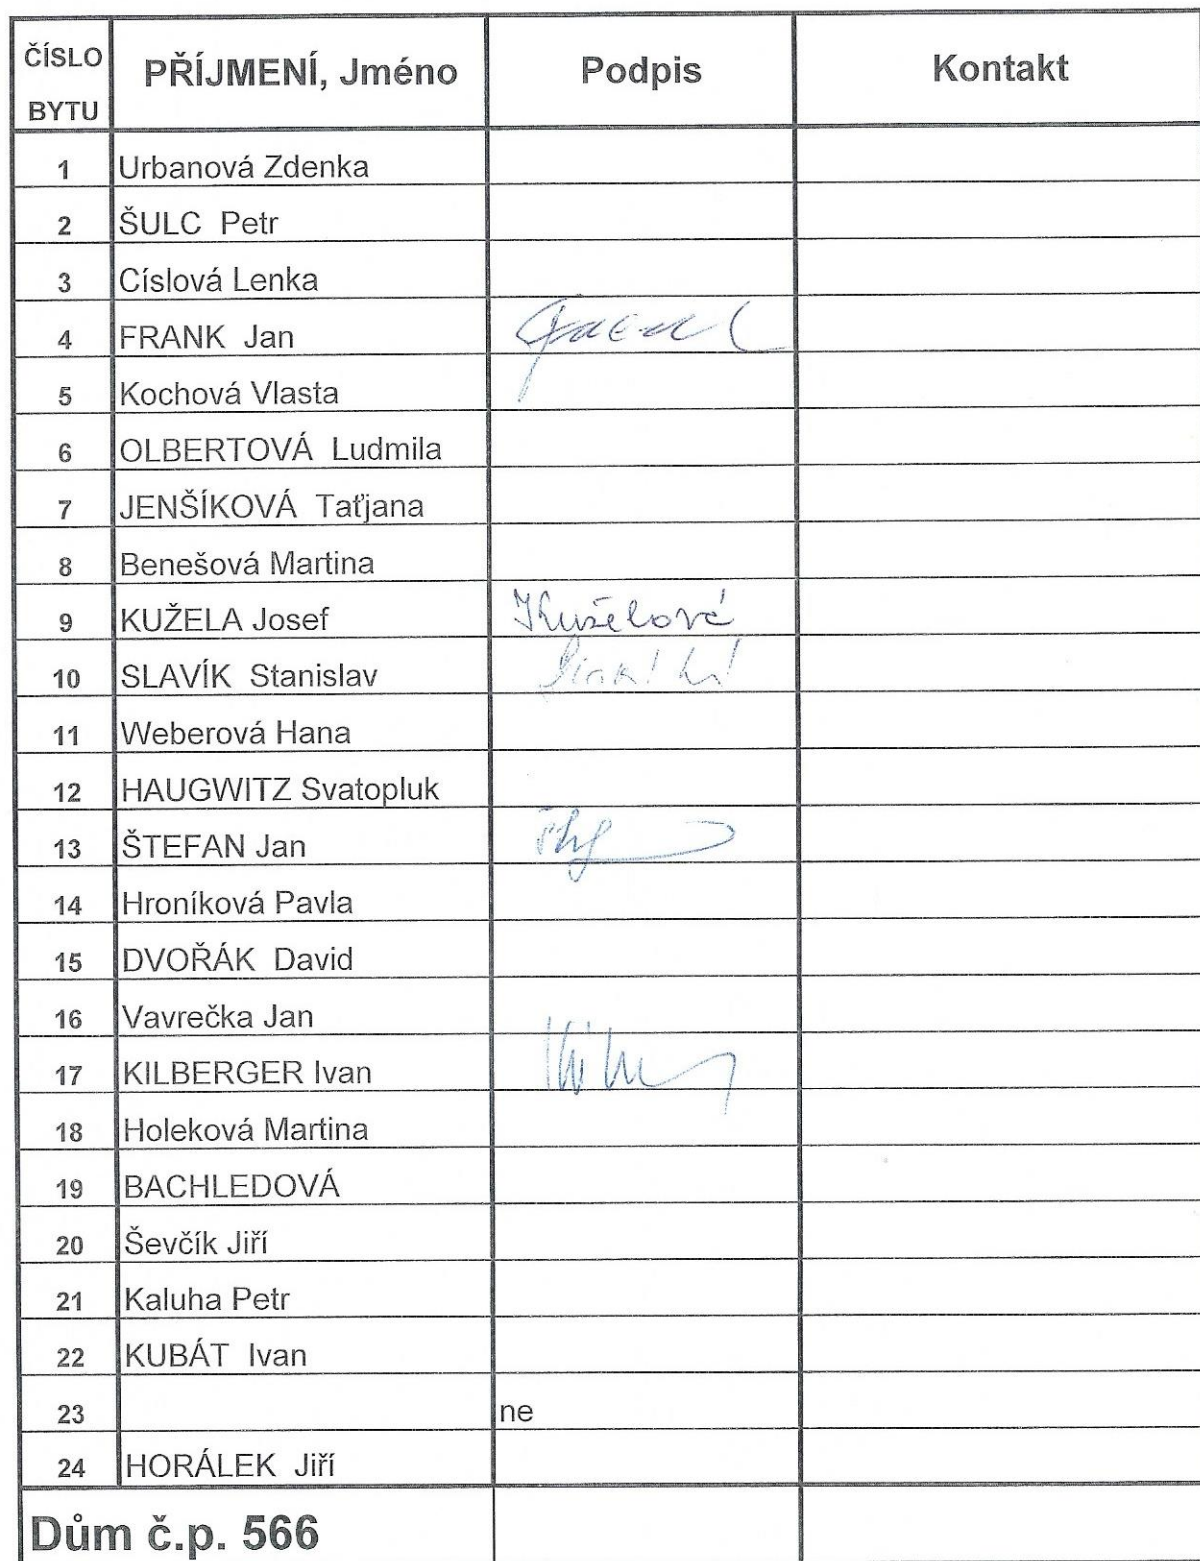 ČÍSLO BYTU PŘÍJMENÍ, Jméno Podpis Kontakt
1 Urbanová Zdenka
2 ŠULC Petr
3 Císlová Lenka
4 FRANK Jan
5 Kochová Vlasta
6 OLBERTOVÁ Ludmila
7 JENŠÍKOVÁ Taťjana
8 Benešová Martina
9 KUŽELA Josef Kuželová
10 SLAVÍK Stanislav
11 Weberová Hana
12 HAUGWITZ Svatopluk
13 ŠTEFAN Jan
14 Hroníková Pavla
15 DVOŘÁK David
16 Vavrečka Jan
17 KILBERGER Ivan
18 Holeková Martina
19 BACHLEDOVÁ
20 Ševčík Jiří
21 Kaluha Petr
22 KUBÁT Ivan
23 ne
24 HORÁLEK Jiří
Dům č.p. 566